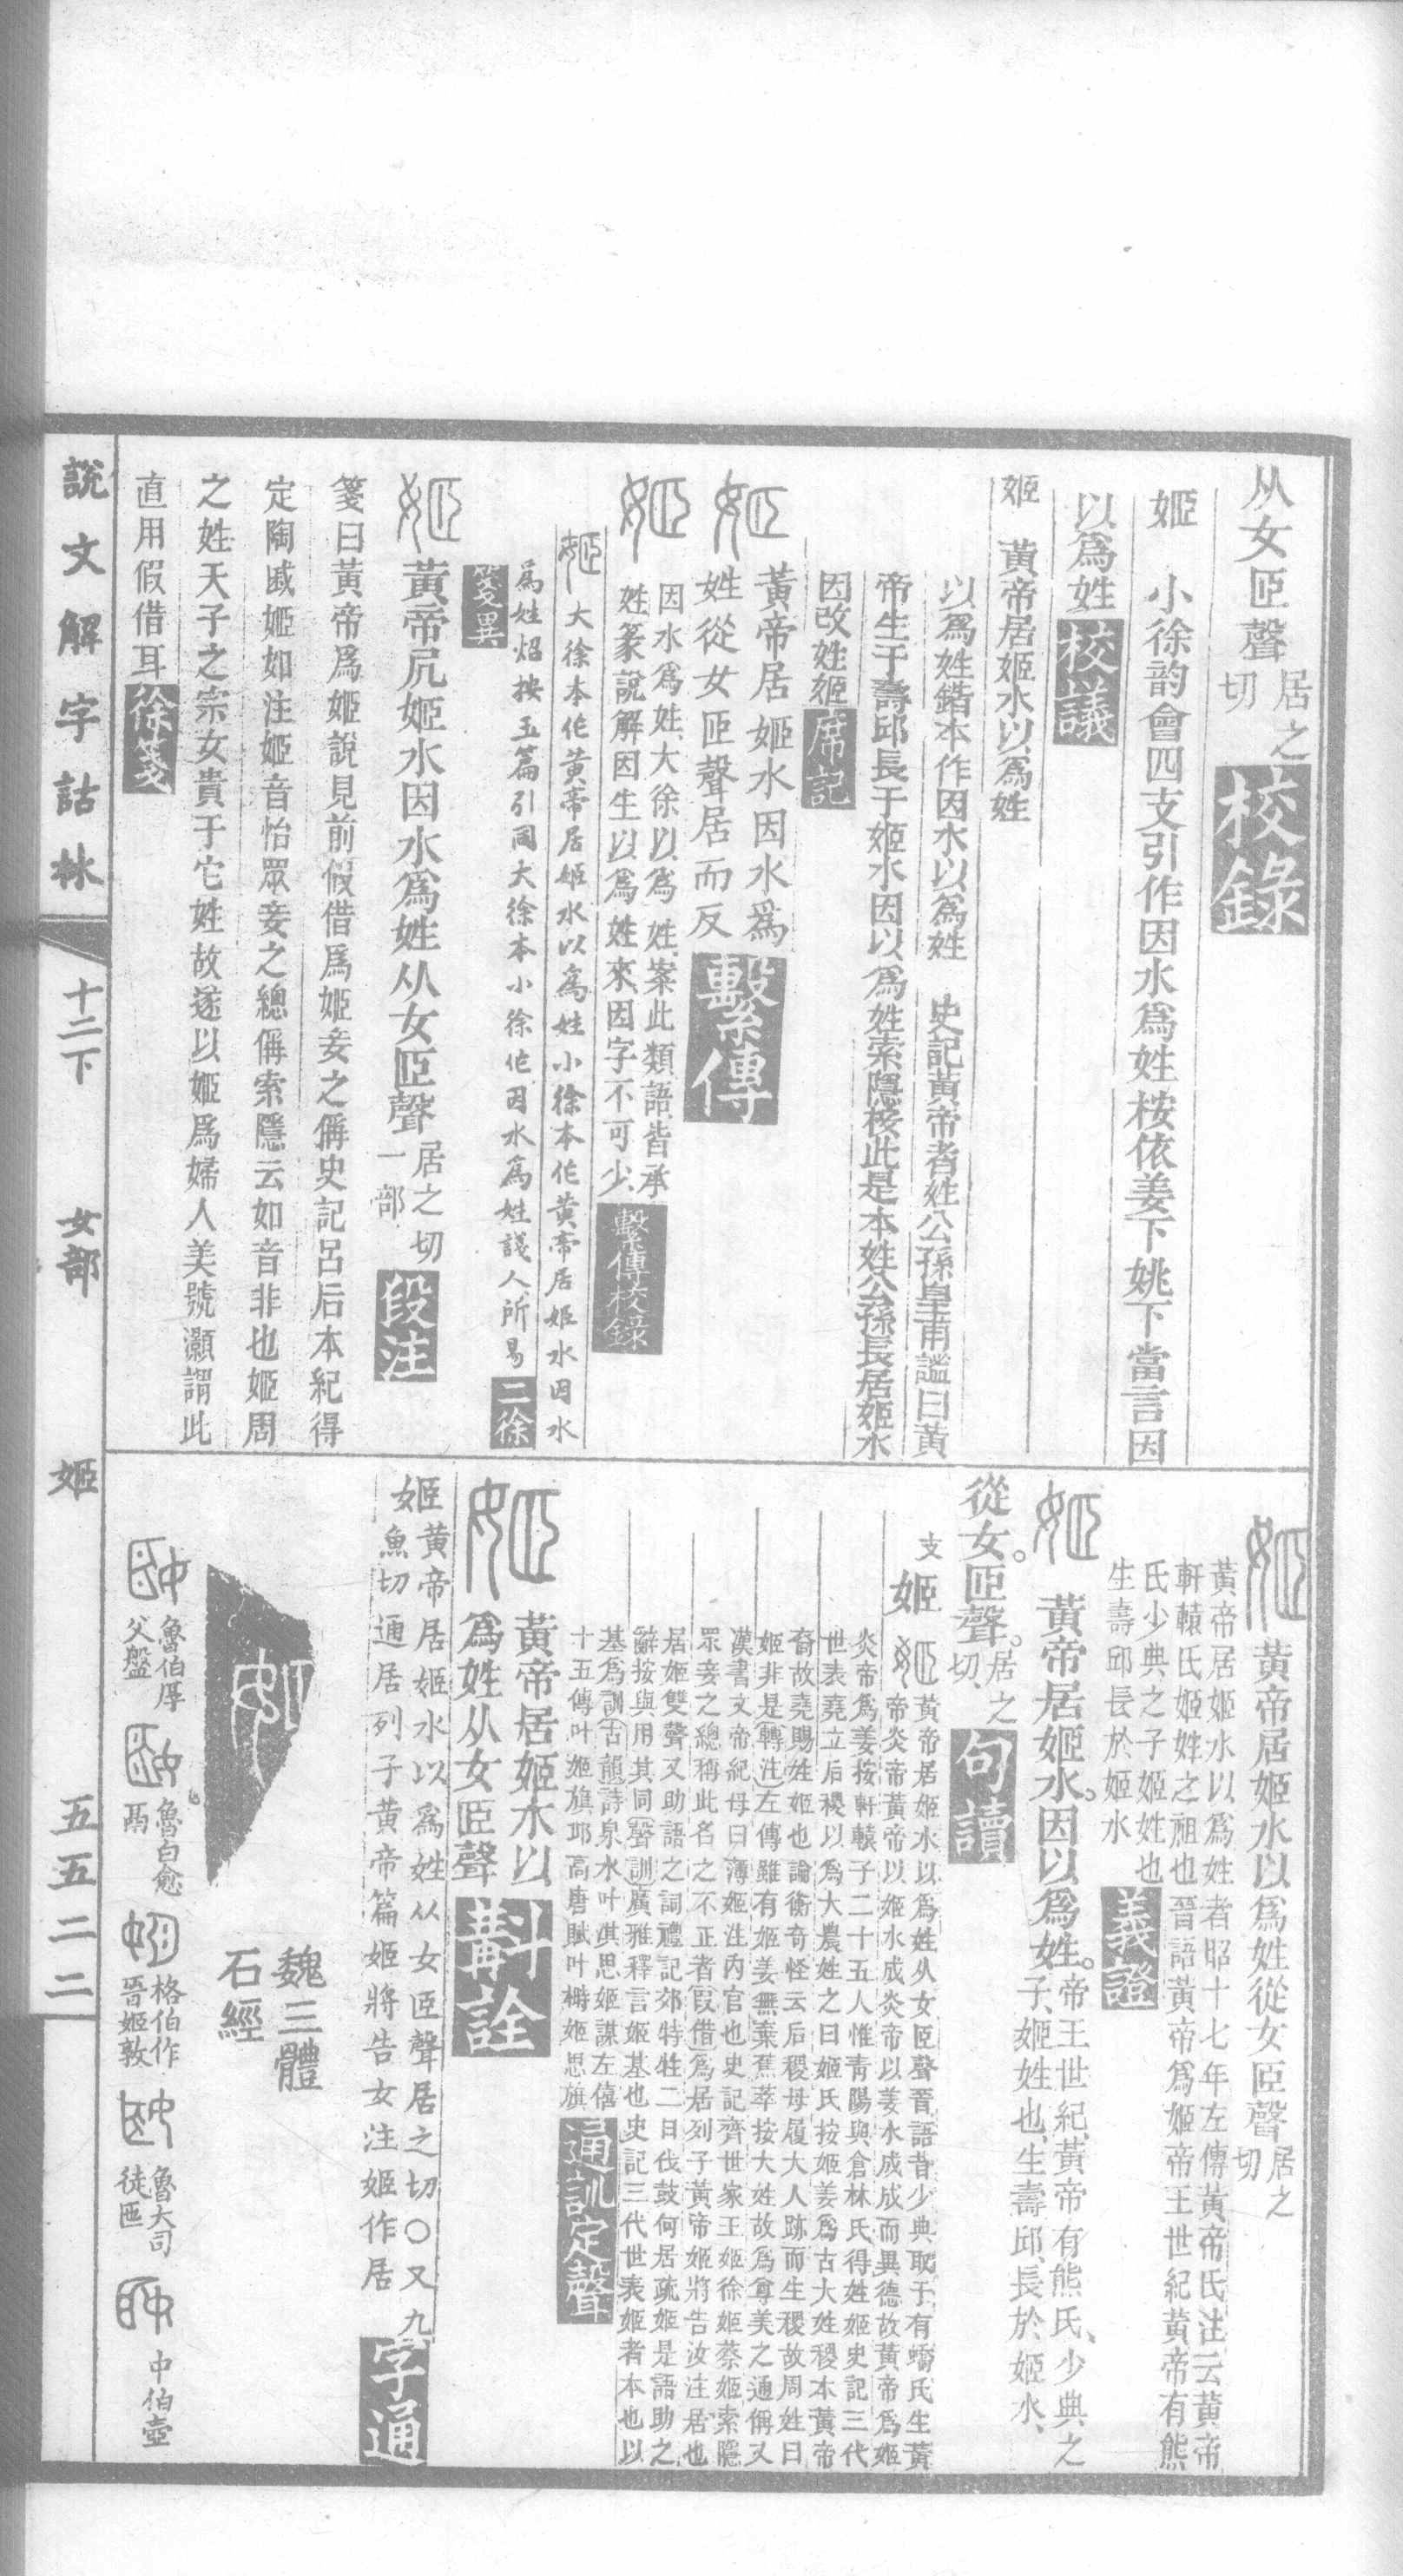 从女𦣞聲
居之
切
校錄
姬 小徐韵會四支引作因水爲姓桉依姜下姚下當言因
以爲姓
校議
姬 黃帝居姬水以爲姓
以爲姓鍇本作因水以爲姓 史記黃帝者姓公孫皇甫謐曰黃
帝生于壽邱長于姬水因以爲姓索隱桉此是本姓公孫長居姬水
因改姓姬
席記
黃帝居姬水因水爲
姓從女𦣞聲居而反
繫傳
因水爲姓大徐以爲姓案此類語皆承
姓篆說解因生以爲姓來因字不可少
繫傳校錄
大徐本作黃帝居姬水以爲姓小徐本作黃帝居姬水因水
爲姓炤按玉篇引同大徐本小徐作因水爲姓諓人所易
二徐
箋異
黃帝凥姬水因水爲姓从女𦣞聲
居之切
一部
段注
箋曰黃帝爲姬說見前假借爲姬妾之偁史記呂后本紀得
定陶戚姬如注姬音怡眾妾之總偁索隱云如音非也姬周
之姓天子之宗女貴于它姓故遂以姬爲婦人美號灝謂此
直用假借耳
徐箋
黃帝居姬水以爲姓從女𦣞聲
居之
切
黃帝居姬水以爲姓者昭十七年左傳黃帝氏注云黃帝
軒轅氏姬姓之祖也晉語黃帝爲姬帝王世紀黃帝有熊
氏少典之子姬姓也
生壽邱長於姬水
義證
黃帝居姬水。因以爲姓。
帝王世紀、黃帝有熊氏、少典之
子、姬姓也、生壽邱、長於姬水、
從女。𦣞聲。
居之
切、
句讀
支 姬
黃帝居姬水以爲姓从女𦣞聲晉語昔少典取于有蟜氏生黃
帝炎帝黃帝以姬水成炎帝以姜水成成而異德故黃帝爲姬
炎帝爲姜按軒轅子二十五人惟青陽與倉林氏得姓姬史記三代
世表堯立后稷以爲大農姓之曰姬氏按姬姜爲古大姓稷本黃帝
裔故堯賜姓姬也論衡奇怪云后稷母履大人跡而生稷故周姓曰
姬非是轉注左傳雖有姬姜無棄蕉萃按大姓故爲尊美之通偁又
漢書文帝紀母曰薄姬注內官也史記齊世家王姬徐姬蔡姬索隱
眾妾之總稱此名之不正者叚借爲居列子黃帝姬將告汝注居也
居姬雙聲又助語之詞禮記郊特牲二日伐鼓何居疏姬是語助之
辭按與用其同聲訓廣雅釋言姬基也史記三代世表姬者本也以
基爲訓古韻詩泉水叶淇思姬謀左僖
十五傳叶姬旗邱高唐賦叶楴姬思旗
通訓定聲
黃帝居姬水以
爲姓从女𦣞聲
斠詮
姬黃帝居姬水以爲姓从女𦣞聲居之切〇又九
魚切通居列子黃帝篇姬將告女注姬作居
字通
魏三體
石經
魯伯厚
父盤
魯白愈
鬲
格伯作
晉姬敦
魯大司
徒匜
中伯壺
說文解字詁林
十二下
女部
姬
五五二二